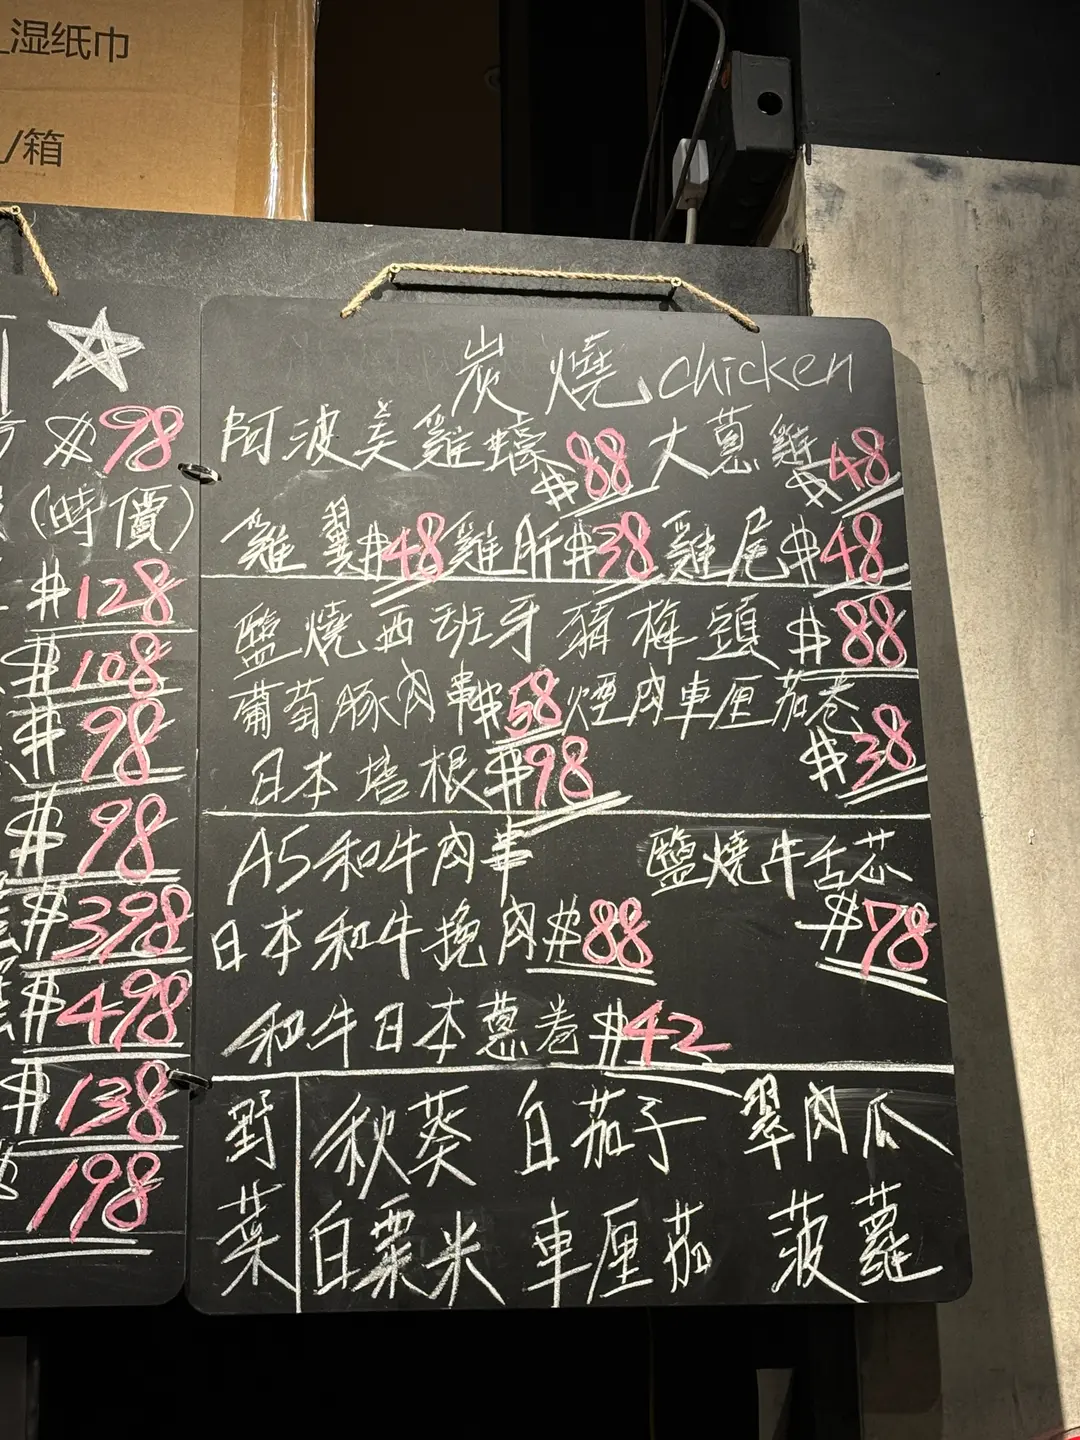 湿纸巾
/箱
$98
(時價)
$128
$108
$98
$98
$398
$498
$138
$198
炭燒 chicken
阿波美雞蠔$88 大蔥雞$48
雞翼$48 雞肝$38 雞尾$48
鹽燒西班牙豬梅頭$88
葡萄豚肉串$58 煙肉車厘茄卷$38
日本培根$98
A5和牛肉串 鹽燒牛舌芯$78
日本和牛挽肉$88
和牛日本蔥卷$42
野菜
秋葵 白茄子 翠肉瓜
白粟米 車厘茄 菠蘿